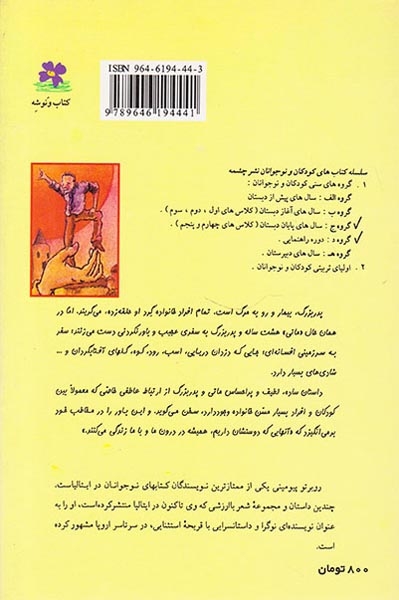 ISBN 964-6194-44-3
9 789646 194441
کتاب ونوشه
سلسله کتاب های کودکان و نوجوانان نشر چشمه
۱ . گروه های سنی کودکان و نوجوانان :
گروه الف : سال های پیش از دبستان
گروه ب : سال های آغاز دبستان (کلاس های اول ، دوم ، سوم ) .
گروه ج : سال های پایان دبستان (کلاس های چهارم و پنجم ) .
گروه د : دوره راهنمایی .
گروه هـ : سال های دبیرستان .
۲ . اولیای تربیتی کودکان و نوجوانان .
پدربزرگ، بیمار و رو به مرگ است. تمام افراد خانواده گِرد او حلقه‌زده، می‌گریند. اما در
همان حال «ماتی» هشت ساله و پدربزرگ به سفری عجیب و باورنکردنی دست می‌زنند؛ سفر
به سرزمینی افسانه‌ای؛ جایی که دزدان دریایی، اسب، رود، کوه، گلهای آفتابگردان و ...
شادی‌های بسیار دارد.
داستان ساده، لطیف و پراحساس ماتی و پدربزرگ از ارتباط عاطفی خاصی که معمولاً بین
کودکان و افراد بسیار مسّن خانواده وجوددارد، سخن می‌گوید. و این باور را در مخاطب خود
برمی‌انگیزد که «آنهایی که دوستشان داریم، همیشه در درون ما و با ما زندگی می‌کنند.»
روبرتو پیومینی یکی از ممتازترین نویسندگان کتابهای نوجوانان در ایتالیاست.
چندین داستان و مجموعهٔ شعر باارزشی که وی تاکنون در ایتالیا منتشرکرده‌است، او را به
عنوان نویسنده‌ای نوگرا و داستانسرایی با قریحهٔ استثنایی، در سرتاسر اروپا مشهور کرده
است.
۸۰۰ تومان